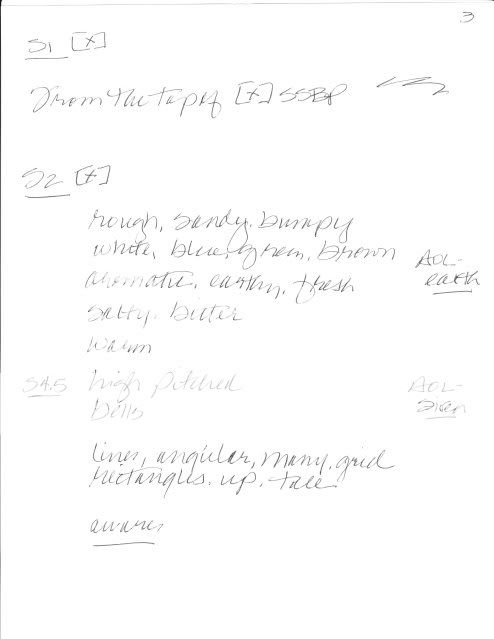 3
S1 [X]
From the top of [X] SSBP
S2 [X]
rough, sandy, bumpy
white, blue, green, brown
AOL-
earth
aromatic, earthy, fresh
salty, bitter
warm
S4.5 high pitched
AOL-
Siren
bells
lines, angular, many, grid
rectangles, up, tall